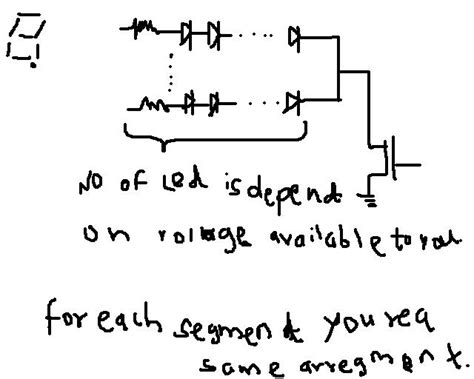 No of Led is depend
on voltage available to you
for each segment you req
same arregment.